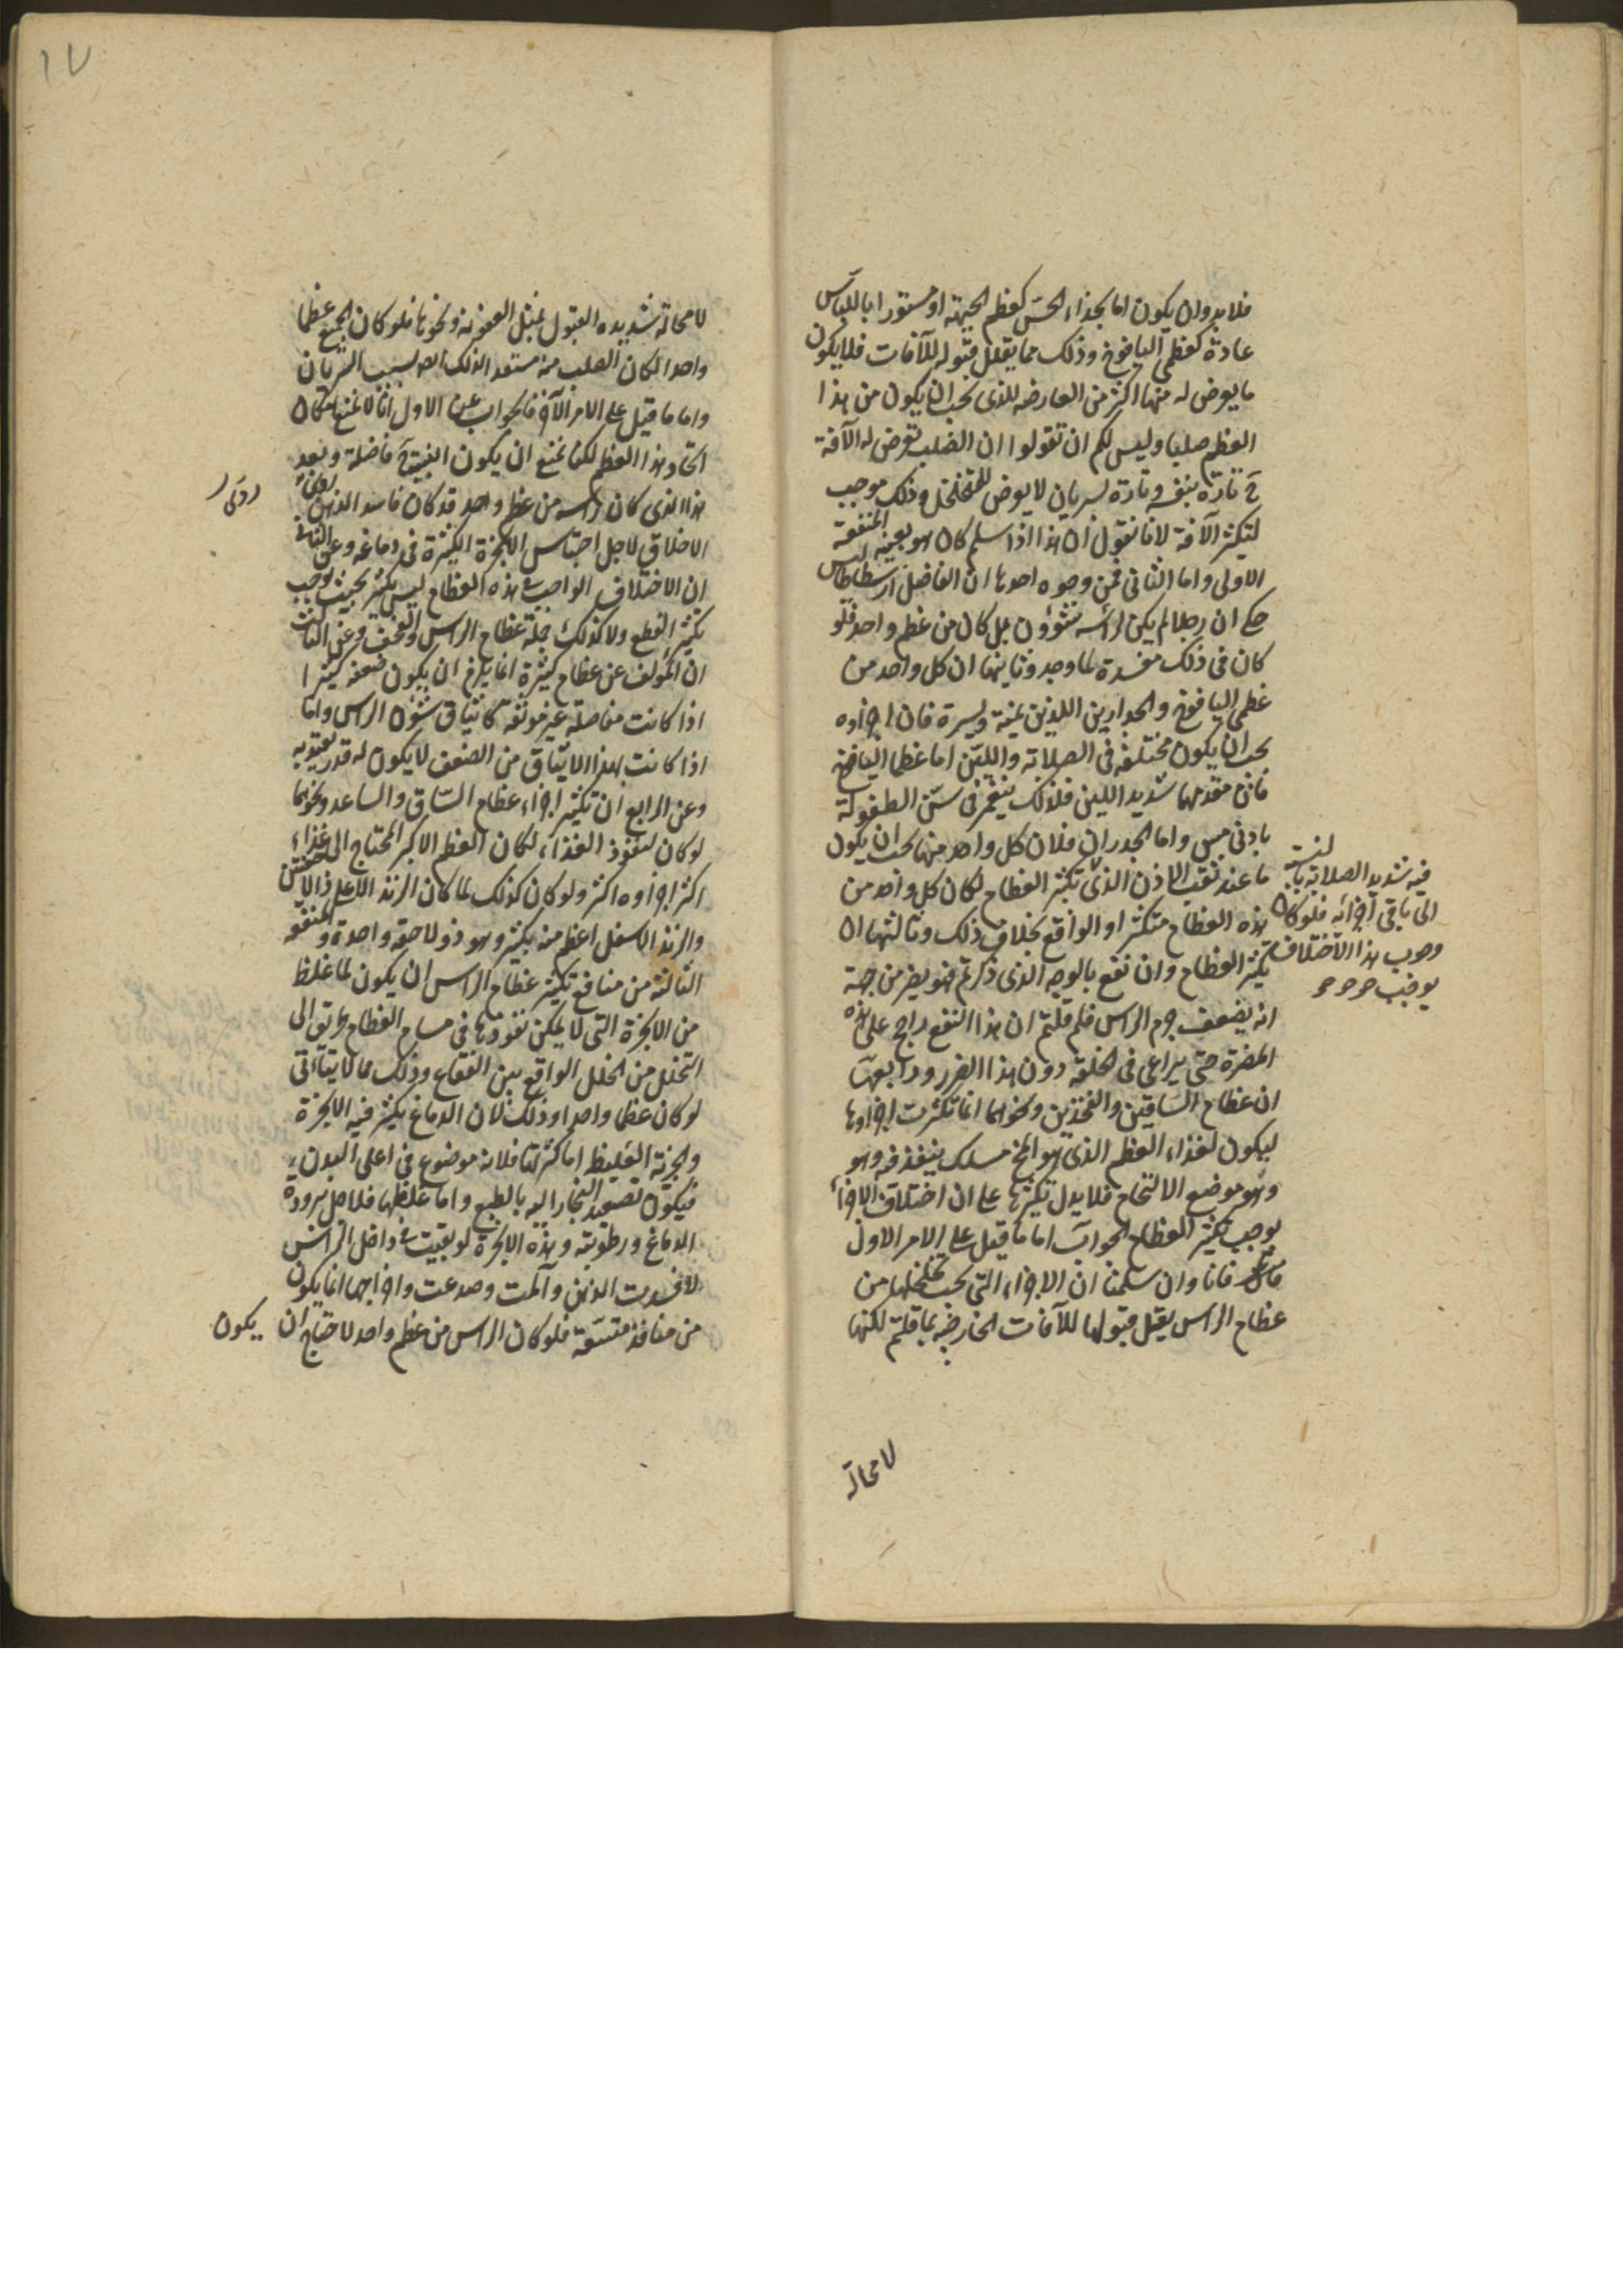 فلا بد وان يكون اما بحذاء الحس كعظم الجبهة او مستورا باللباس
عادة كعظمى اليافوخ وذلك مما يقلل قبوله للآفات فلا يكون
ما يعرض له منها اكثر من العارضة للذى يجب ان يكون من هذا
العظم صلبا وليس لكم ان تقولوا ان الصلب تعرض له الآفة
ح تارة بنفسه وتارة بسريان لا يعرض للمتخلخل وذلك موجب
لتكثر الآفة لانا نقول ان هذا اذا سلم كان هو بعينه المنفعة
الاولى واما الثانى فمن وجوه احدها ان الفاضل ارسطاطاليس
حكى ان رجلا لم يكن لرأسه شؤون بل كان من عظم واحد فلو
كان فى ذلك مفسدة لما وجد وثانيها ان كل واحد من
عظمى اليافوخ والجدارين اللذين يمنة ويسرة فان اجزاؤه
يجب ان يكون مختلفة فى الصلابة واللين اما عظما اليافوخ
فان مقدمهما شديد اللين فلذلك ينغمز فى سن الطفولة
بادنى مس واما الجدران فلان كل واحد منهما يجب ان يكون
ما عند ثقب الاذن الذى
فيه شديد الصلابة بالنسبة
الى باقى اجزائه فلو كان
وجوب هذا الاختلاف
يوجب
تكثر العظام لكان كل واحد من
هذه العظام متكثرا والواقع بخلاف ذلك وثالثها ان
تكثر العظام وان نفع بالوجه الذى ذكرتم فهو يضر من جهة
انه يضعف جرم الراس فلم قلتم ان هذا النفع راجح على هذه
المضرة حتى يراعى فى الخلقة دون هذا الضرر ورابعها
ان عظام الساقين والفخذين ونحوهما انما تكثرت اجزاؤها
ليكون لغذاء العظم الذى هو المخ مسلك ينفذ فيه وهو
وهو موضع الالتحام فلا يدل تكثرها على ان اختلاف الاجزاء
يوجب تكثر العظام الجواب اما ما قيل على الامر الاول
فانا وان سلمنا ان الاجزاء التى يجب تخلخلها من
عظام الراس يقل قبولها للآفات الخارجية بما قلتم لكنها
لا محالة
١٧
لا محالة شديدة القبول لمثل العفونة ونحوها فلو كان الجميع عظما
واحدا لكان الصلب منه مستعدا لذلك ايضا بسبب السريان
واما ما قيل على الامر الآخر فالجواب عن الاول انا لا نمنع امكان
اتحاد هذا العظم لكنا نمنع ان يكون البنية ح فاضلة ولعل
هذا الذى كان راسه من عظم واحد قد كان فاسد الذهن
الاخلاق لاجل احتباس الابخرة الكثيرة فى دماغه وعن الثانى
ان الاختلاف الواجب فى هذه العظام ليس بكثير بحيث يوجب
تكثير القطع ولا كذلك جملة عظام الراس والقحف وعن الثالث
ان المؤلف عن عظام كثيرة انما يلزم ان يكون ضعفه كثيرا
اذا كانت مفاصله غير موثقة كايثاق شؤن الراس واما
اذا كانت بهذا الايثاق من الضعف لا يكون له قدر يعتد به
وعن الرابع ان تكثير اجزاء عظام الساق والساعد ونحوهما
لو كان لنفوذ الغذاء لكان العظم الاكبر المحتاج الى غذاء
اكثر اجزاؤه اكثر ولو كان كذلك لما كان الزند الاعلى ذا لاحقتين
والزند الاسفل اعظم منه بكثير وهو ذو لاحقة واحدة والمنفعة
الثالثة من منافع تكثير عظام الراس ان يكون لما غلظ
من الابخرة التى لا يمكن نفوذها فى مسام العظام طريق الى
التحلل من الخلل الواقع بين القطاع وذلك مما لا يتأتى
لو كان عظما واحدا وذلك لان الدماغ يكثر فيه الابخرة
والجرية الغليظ اما كثرتها فلانه موضوع فى اعلى البدن
فيكون تصعد البخار اليه بالطبع واما غلظها فلاجل برودة
الدماغ ورطوبته وهذه الابخرة لو بقيت فى داخل الراس
لافسدت الذهن وآلمت وصدعت واخراجها انما يكون
من منافذ متسعة فلو كان الراس من عظم واحد لاحتاج ان يكون